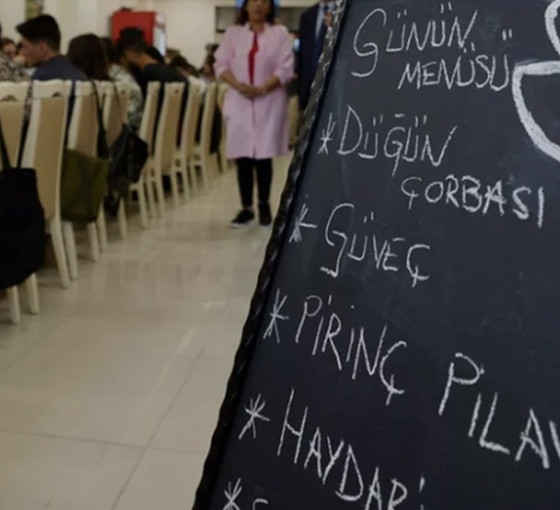 GÜNÜN
MENÜSÜ
* DÜĞÜN
ÇORBASI
* GÜVEÇ
* PİRİNÇ PİLAV
* HAYDARİ
*